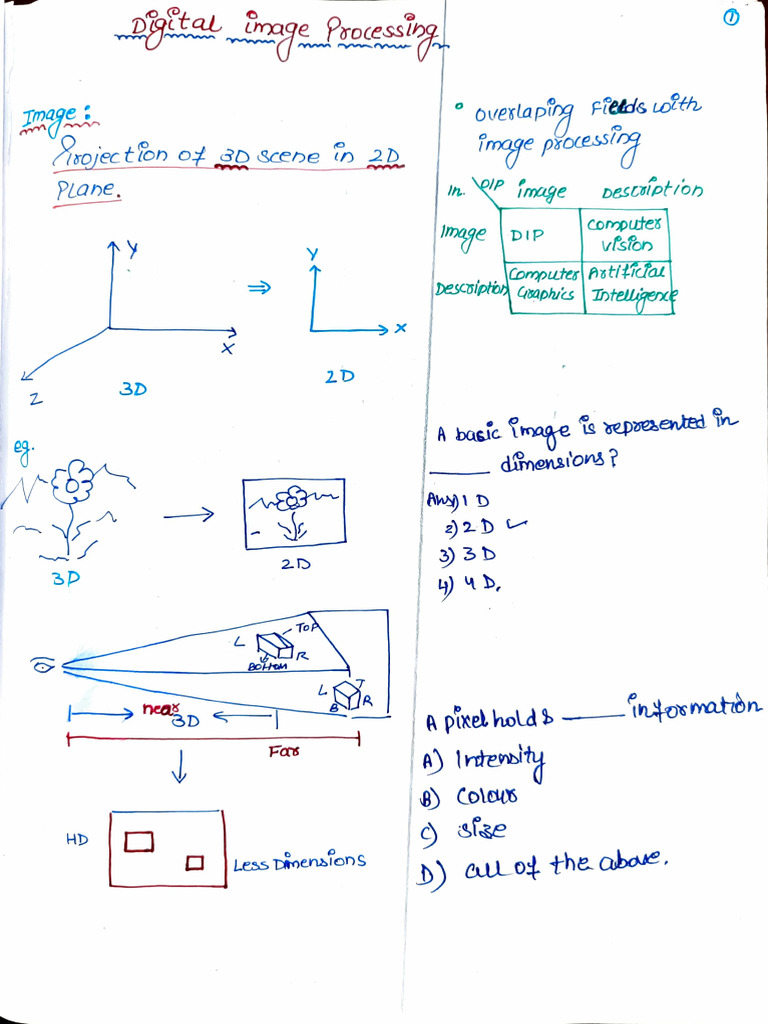 Digital image Processing
1
Image:
Projection of 3D scene in 2D
Plane.
Y
X
Z
3D
⇒
Y
X
2D
eg.
3D
2D
L
TOP
R
Bottom
L
T
R
B
near
3D
Far
HD
Less Dimensions
• overlaping Fields with
image processing
In. DIP image Description
Image DIP Computer vision
Description Computer Graphics Artificial Intelligence
A basic image is represented in
______ dimensions?
Ans) 1 D
2) 2 D ✓
3) 3 D
4) 4 D.
A pixel holds ______ information
A) Intensity
B) Colour
C) size
D) all of the above.